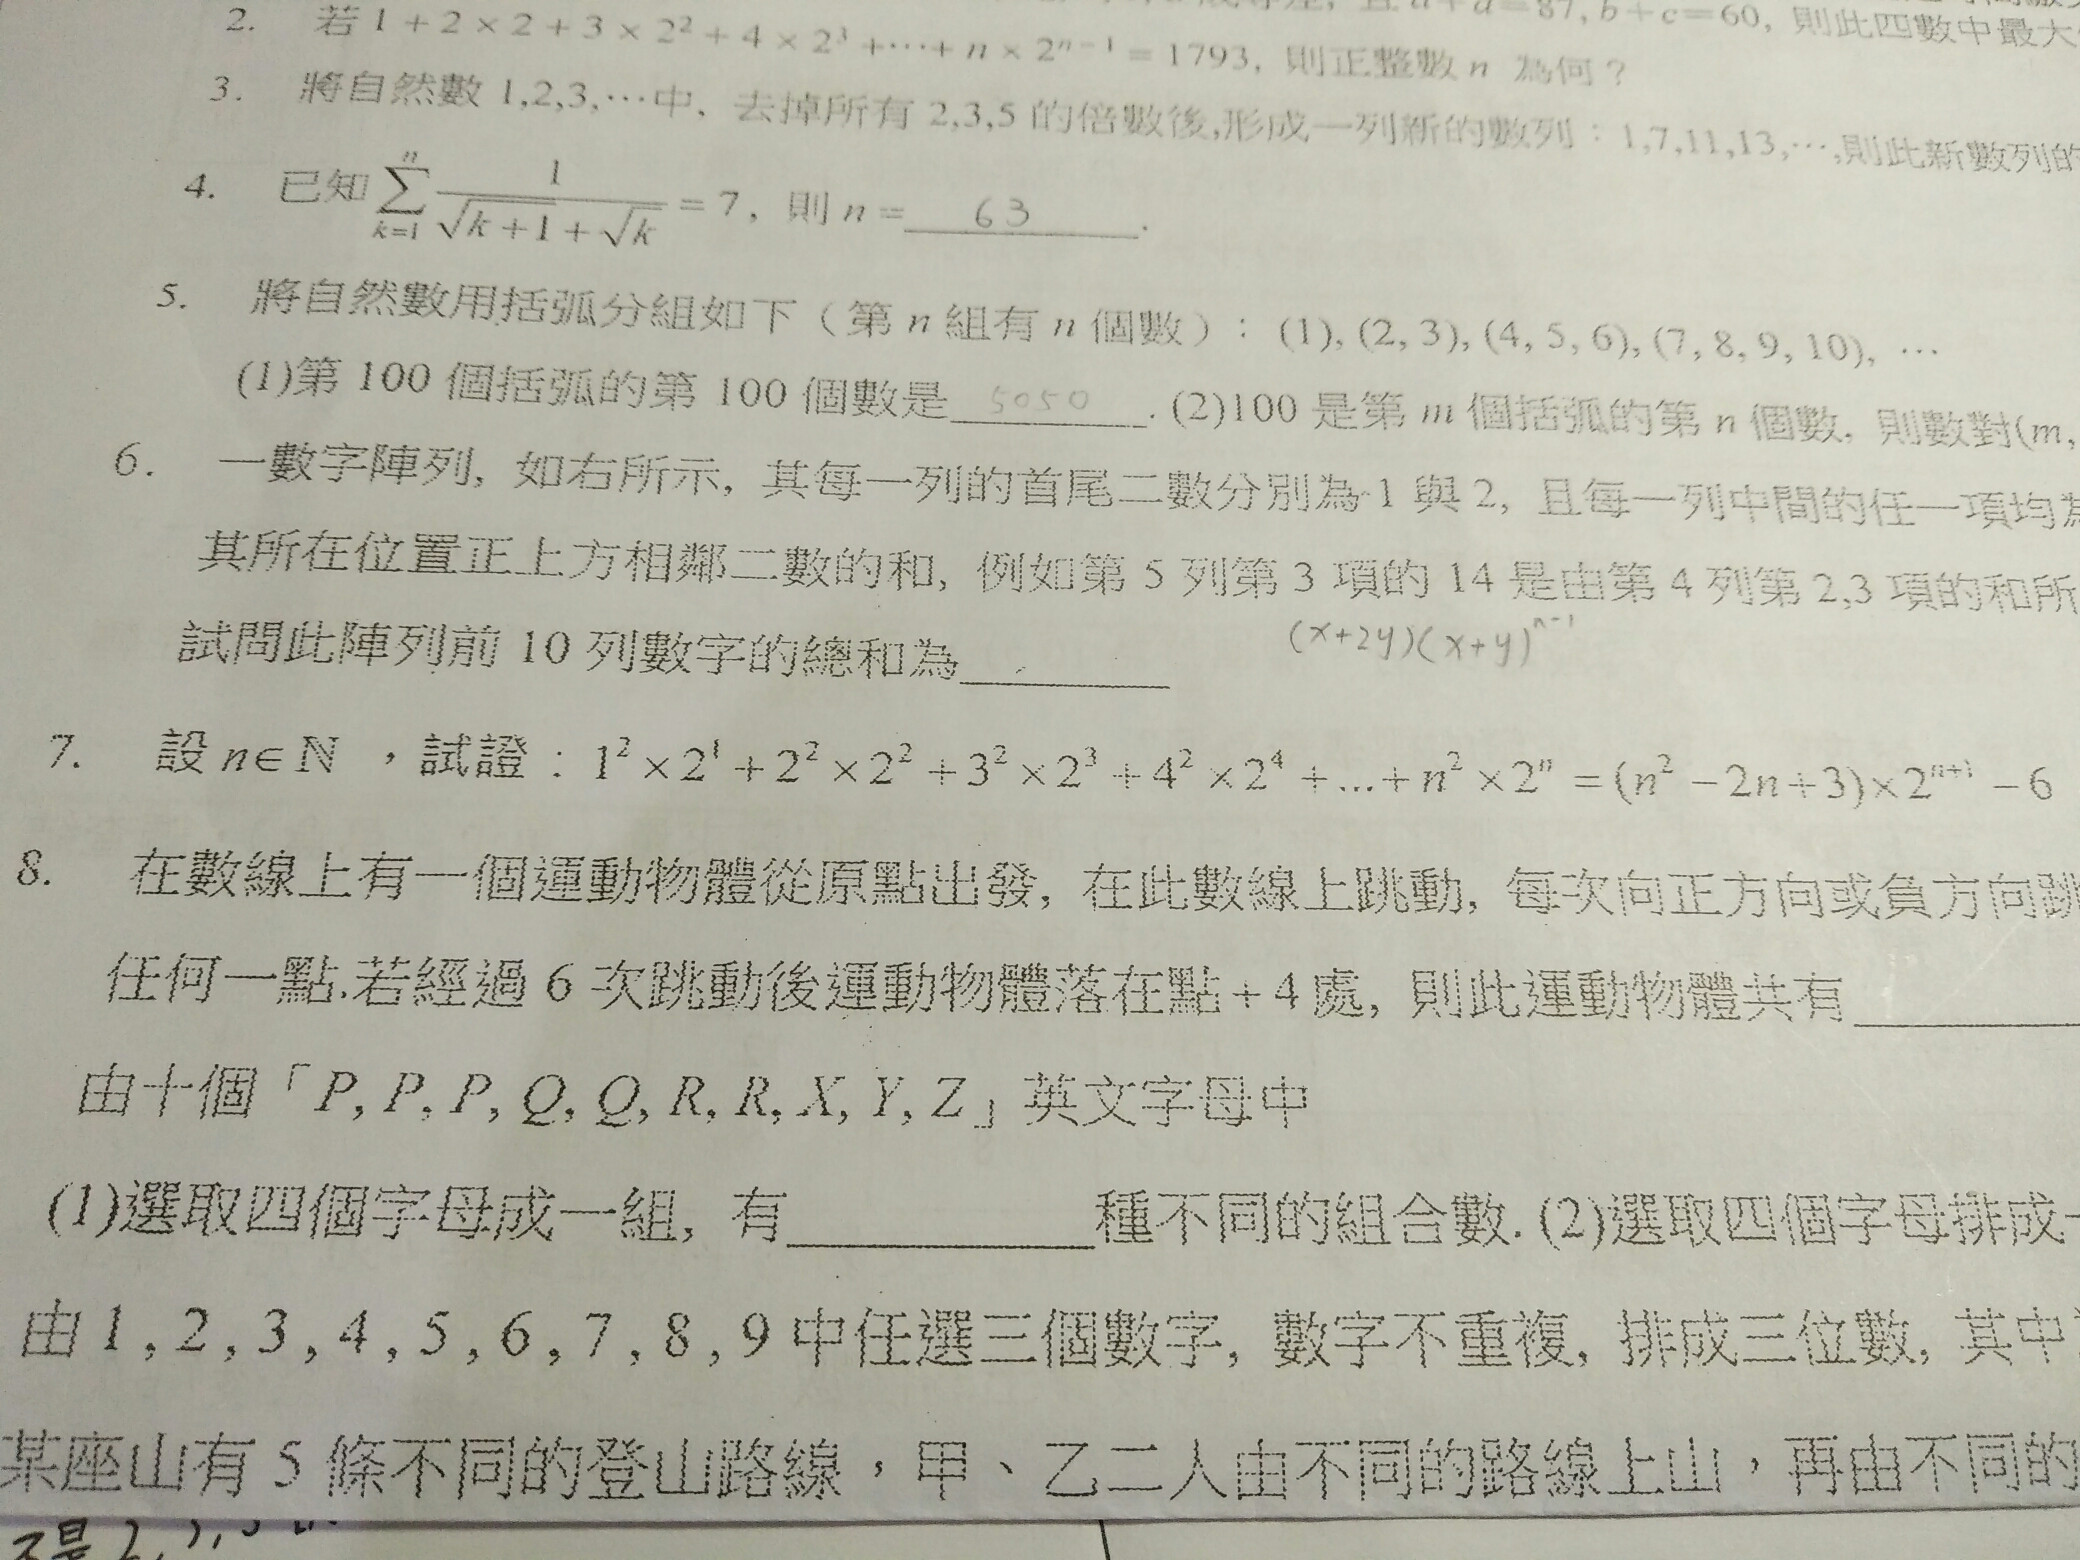 且 a+d=87, b+c=60, 則此四數中最大
2. 若 1+2×2+3×2²+4×2³+⋯+n×2ⁿ⁻¹=1793, 則正整數 n 為何？
3. 將自然數 1,2,3,⋯中, 去掉所有 2,3,5 的倍數後,形成一列新的數列：1,7,11,13,⋯,則此新數列的
4. 已知 \sum_{k=1}^{n} \frac{1}{\sqrt{k+1}+\sqrt{k}} = 7, 則 n = 63 .
5. 將自然數用括弧分組如下（第 n 組有 n 個數）：(1), (2, 3), (4, 5, 6), (7, 8, 9, 10), ⋯
(1)第 100 個括弧的第 100 個數是 5050 . (2)100 是第 m 個括弧的第 n 個數, 則數對(m,
6. 一數字陣列, 如右所示, 其每一列的首尾二數分別為 1 與 2, 且每一列中間的任一項均為
其所在位置正上方相鄰二數的和, 例如第 5 列第 3 項的 14 是由第 4 列第 2,3 項的和所
試問此陣列前 10 列數字的總和為
(x+2y)(x+y)ⁿ⁻¹
7. 設 n∈N ，試證：1²×2¹+2²×2²+3²×2³+4²×2⁴+...+n²×2ⁿ=(n²−2n+3)×2ⁿ⁺¹−6
8. 在數線上有一個運動物體從原點出發, 在此數線上跳動, 每次向正方向或負方向跳
任何一點.若經過 6 次跳動後運動物體落在點+4處, 則此運動物體共有
由十個「P, P, P, Q, Q, R, R, X, Y, Z」英文字母中
(1)選取四個字母成一組, 有 種不同的組合數. (2)選取四個字母排成一
由 1 , 2 , 3 , 4 , 5 , 6 , 7 , 8 , 9 中任選三個數字, 數字不重複, 排成三位數, 其中
某座山有 5 條不同的登山路線，甲、乙二人由不同的路線上山，再由不同的